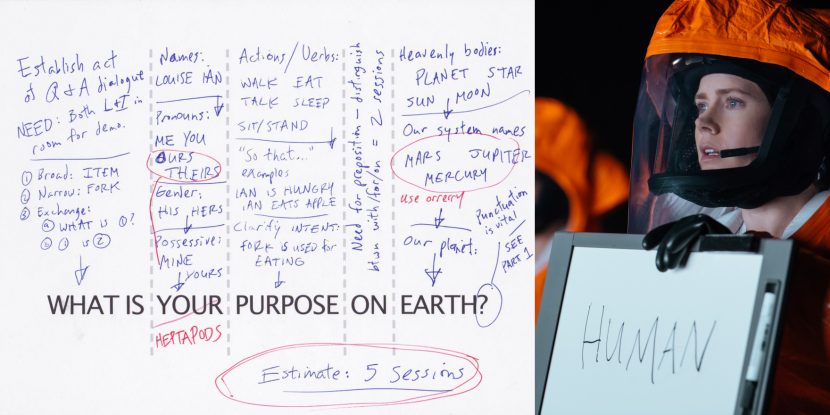 Establish act
of Q & A dialogue
NEED: Both L+I in
room for demo.
① Broad: ITEM
② Narrow: FORK
③ Exchange:
ⓐ WHAT IS ①?
ⓑ ① is ②
Names:
LOUISE IAN
Pronouns:
ME YOU
OURS
THEIRS
Gender:
HIS HERS
Possessive:
MINE
YOURS
Actions/Verbs:
WALK EAT
TALK SLEEP
SIT/STAND
"So that..."
examples
IAN IS HUNGRY
IAN EATS APPLE
Clarify INTENT:
FORK IS USED for
EATING
Need for preposition – distinguish
btwn with/for/on = 2 sessions
Heavenly bodies:
PLANET STAR
SUN MOON
Our system names
MARS JUPITER
MERCURY
use orrery
Our planet:
Punctuation
is vital
SEE
PART 1
WHAT IS YOUR PURPOSE ON EARTH?
HEPTAPODS
Estimate: 5 Sessions
HUMAN